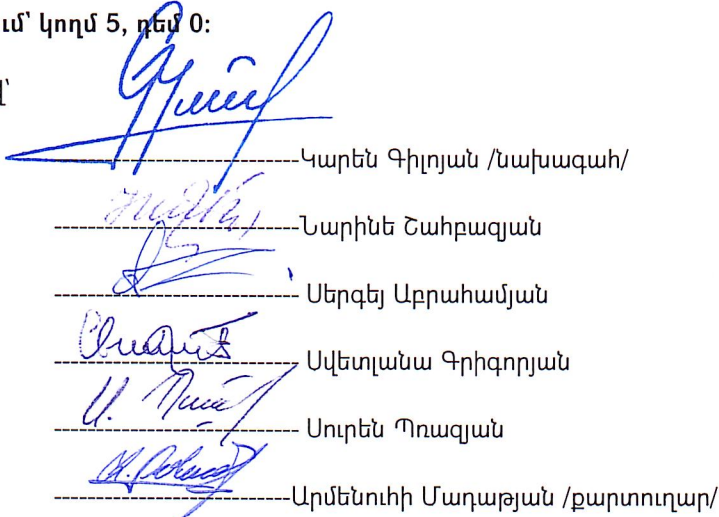 ւմ՝ կողմ 5, դեմ 0:
լ՝
Կարեն Գիլոյան /նախագահ/
Նարինե Շահբազյան
Սերգեյ Աբրահամյան
Սվետլանա Գրիգորյան
Սուրեն Պռազյան
Արմենուհի Մադաթյան /քարտուղար/